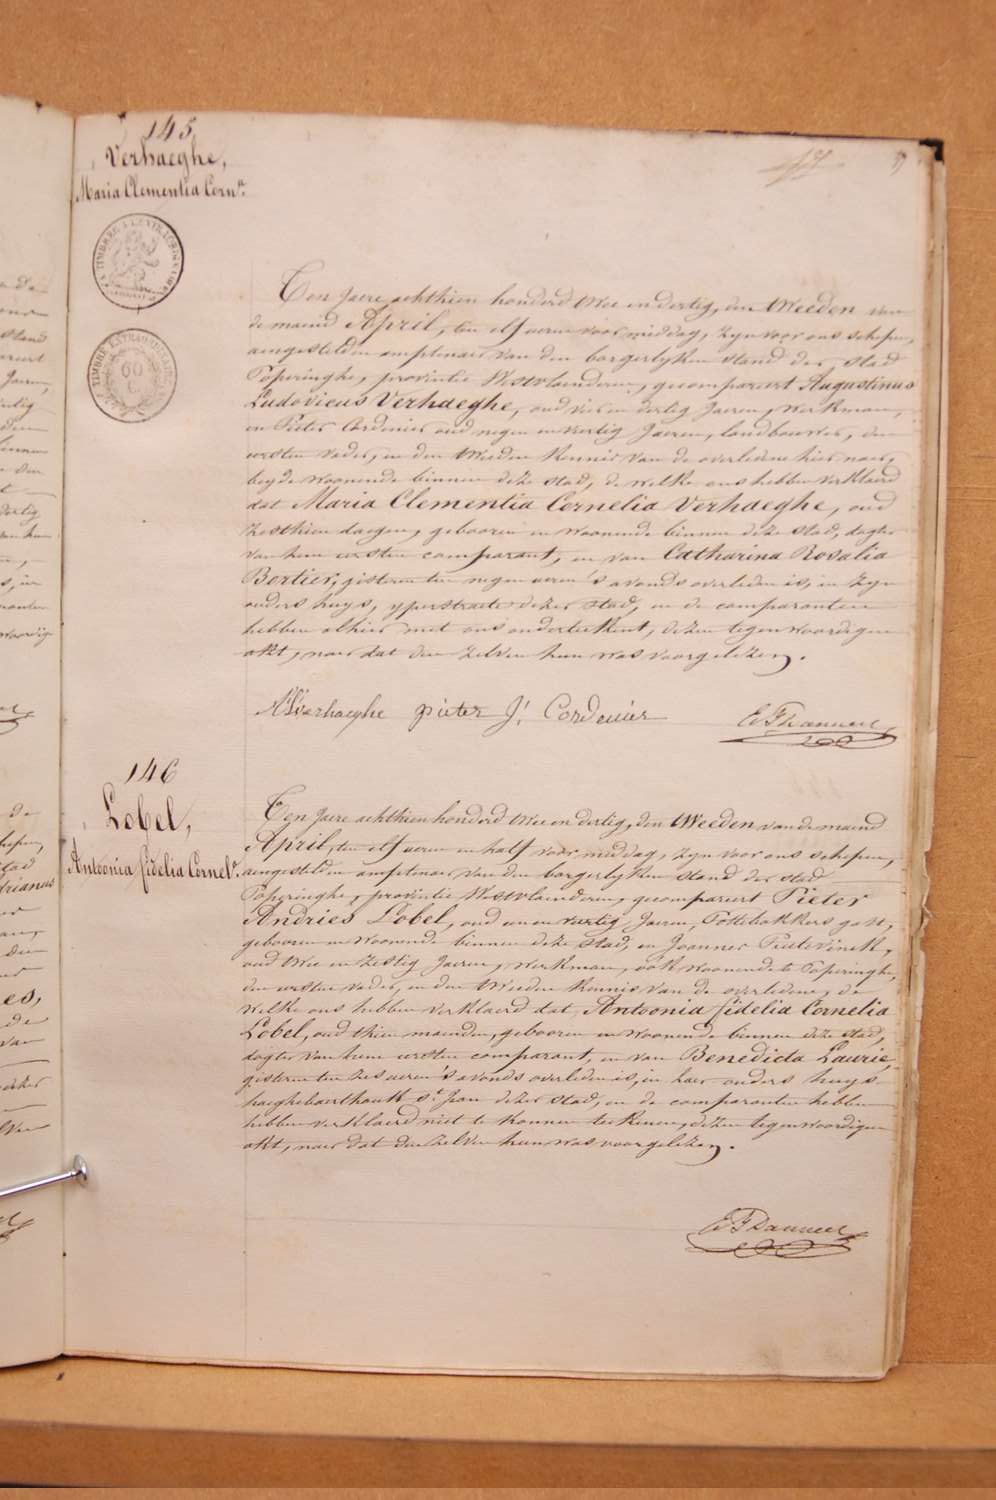 145
Verhaeghe,
Maria Clementia Corn.ª
17
TIMBRE EXTRAORDINAIRE
60
C
Ten Jaere achthien honderd twee en dertig, den tweeden van
de maend April, ten elf ueren voor middag, zyn voor ons schepen,
aengestelden amptenaer van den borgerlyken stand der stad
Poperinghe, provintie Westvlaenderen, gecompareert Augustinus
Ludovicus Verhaeghe, oud vier en dertig Jaeren, werkman,
en Pieter Cordenier oud negen en veertig Jaeren, landbouwer, den
eersten vader, en den tweeden kennis van de overledene hier naer,
beyde woonende binnen deze stad, de welke ons hebben verklaerd
dat Maria Clementia Cornelia Verhaeghe, oud
zesthien daegen, gebooren en woonende binnen deze stad, dogter
van hem eersten comparant, en van Catharina Rosalia
Bortier, gisteren ten negen ueren 's avonds overleden is, in zyn
ouders huys, yperstraete dezer stad, en de comparanten
hebben alhier met ons onderteekent, dezen tegenwoordigen
akt, naer dat den zelven hun was voorgelezen.
A L Verhaeghe pieter J. Cordenier
146
Lobel,
Antoonia fidelia Cornel.ª
Ten Jaere achthien honderd twee en dertig, den tweeden van de maend
April, ten elf ueren en half voor middag, zyn voor ons schepen,
aengestelden amptenaer van den borgerlyken stand der stad
Poperinghe, provintie Westvlaenderen, gecompareert Pieter
Andries Lobel, oud een en veertig Jaeren, Pottebakkers gast,
gebooren en woonende binnen deze stad, en Joannes
oud twee en zestig Jaeren, werkman, ook woonende te Poperinghe,
den eersten vader, en den tweeden kennis van de overledene, de
welke ons hebben verklaerd dat, Antoonia fidelia Cornelia
Lobel, oud thien maenden, gebooren en woonende binnen deze stad,
dogter van hem eersten comparant, en van Benedicta Laurie,
gisteren ten zes ueren 's avonds overleden is, in haer ouders huys
haeghebaerthoek S.t Jan dezer stad, en de comparanten hebben
hebben verklaerd niet te konnen teekenen, dezen tegenwoordigen
akt, naer dat den zelven hun was voorgelezen.